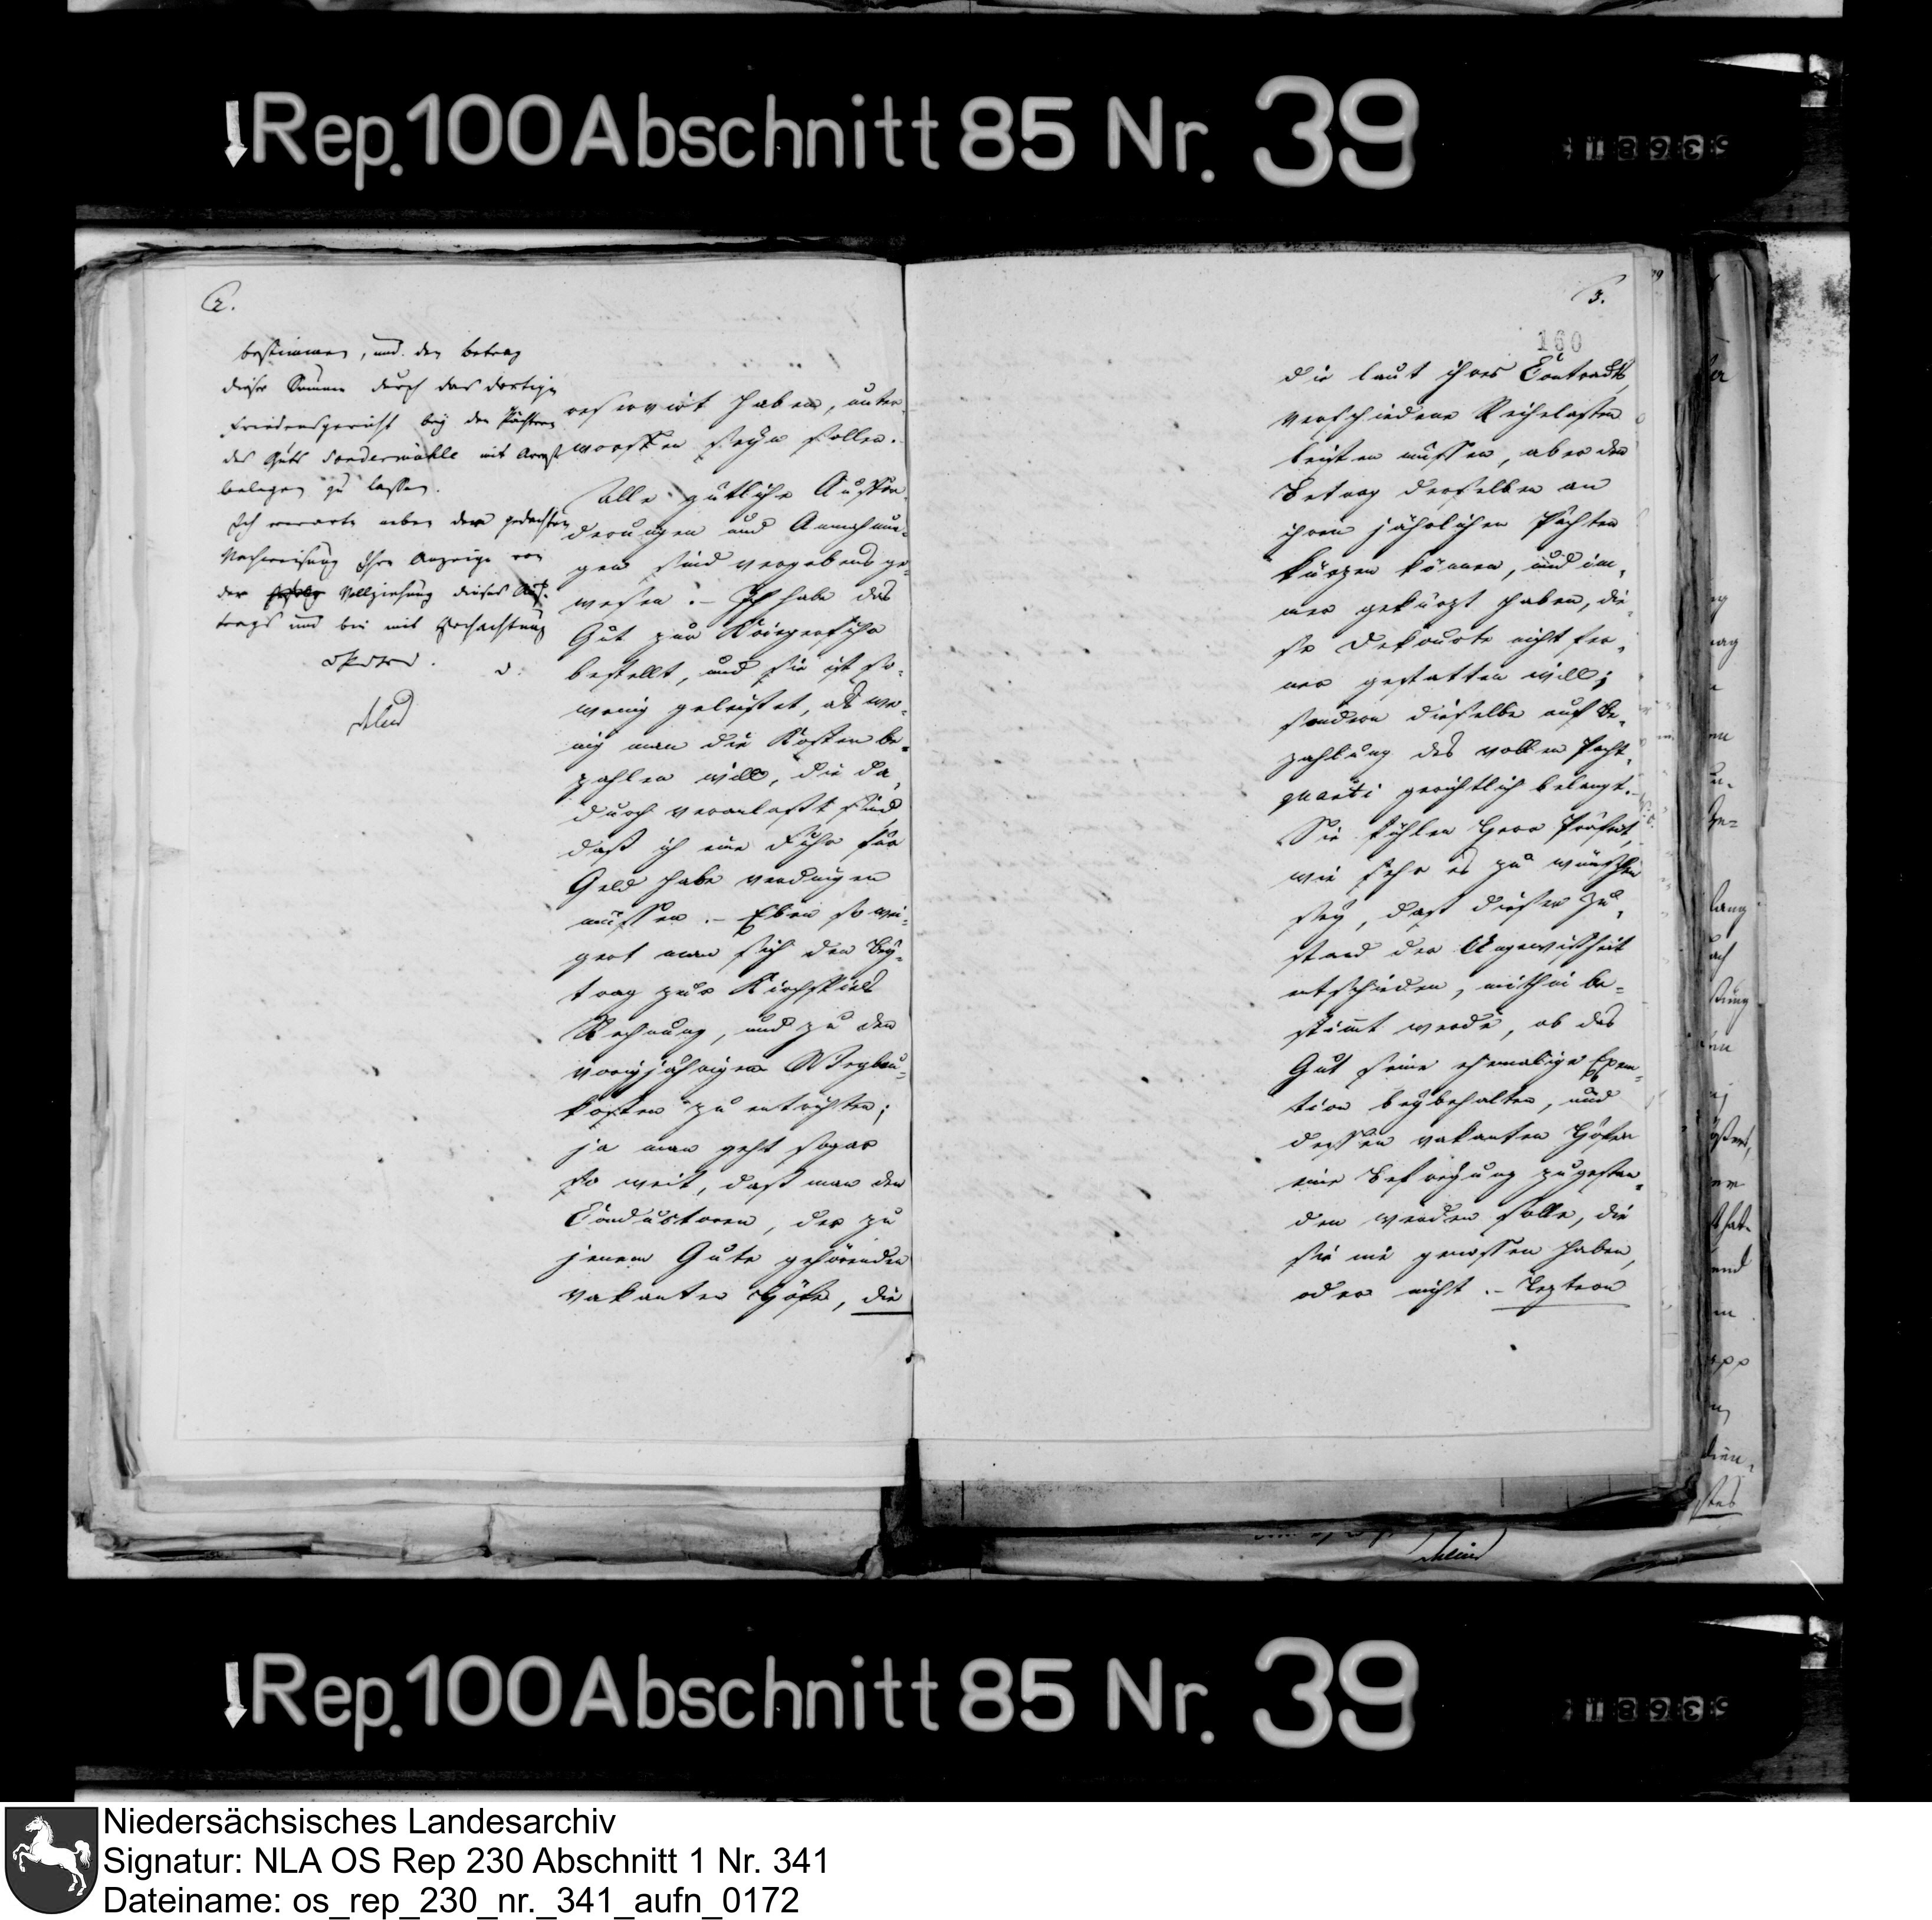 Rep. 100 Abschnitt 85 Nr. 39
2.
bestimmen, und den Betrag
dieser Summe durch das dortige
Friedensgericht bey den Pächtern
des Guts Sondermühle mit Arrest
belegen zu lassen.
Ich erwarte neben der gedachten
Nachweisung Ihre Anzeige von
der Vollziehung dieses Auf-
trags und bin mit Hochachtung
reservirt haben, unter-
worffen seyn sollen.
Alle gütliche Auffor-
derungen und Anmahnun-
gen sind vergebens ge-
wesen. – Ich habe das
Gut zur Kriegerfuhr
bestellt, und sie ist so-
wenig geleistet, als we-
nig man die Kosten be-
zahlen will, die da-
durch veranlaßt sind,
daß ich eine Fuhr für
Geld habe verdingen
müssen. – Eben so wei-
gert man sich den Bey-
trag zur Kirchspiels
Rechnung, und zu den
vorigjährigen Wegbau-
kosten zu entrichten;
ja man geht sogar
so weit, daß man den
Conductoren, der zu
jenem Gute gehörenden
vakanten Höfe, die
3.
160
die laut ihres Contracts
verschiedene Reihelasten
leisten müssen, aber den
Betrag derselben an
ihren jährlichen Pächten
kürzen können, und im-
mer gekürzt haben, die-
se Dekourte nicht fer-
ner gestatten will;
sondern dieselbe auf Be-
zahlung des vollen Pacht-
quanti gerichtlich belangt. –
Sie fühlen Herr Präfect,
wie sehr es zu wünschen
sey, daß dieser Zu-
stand der Ungewißheit
entschieden, mithin be-
stimt werde, ob das
Gut seine ehemalige Exem-
tion beybehalten, und
dessen vakanten Höfen
eine Befreyung zugestan-
den werden solle, die
sie nie genossen haben,
oder nicht. – Letztern
Rep. 100 Abschnitt 85 Nr. 39
Niedersächsisches Landesarchiv
Signatur: NLA OS Rep 230 Abschnitt 1 Nr. 341
Dateiname: os_rep_230_nr._341_aufn_0172